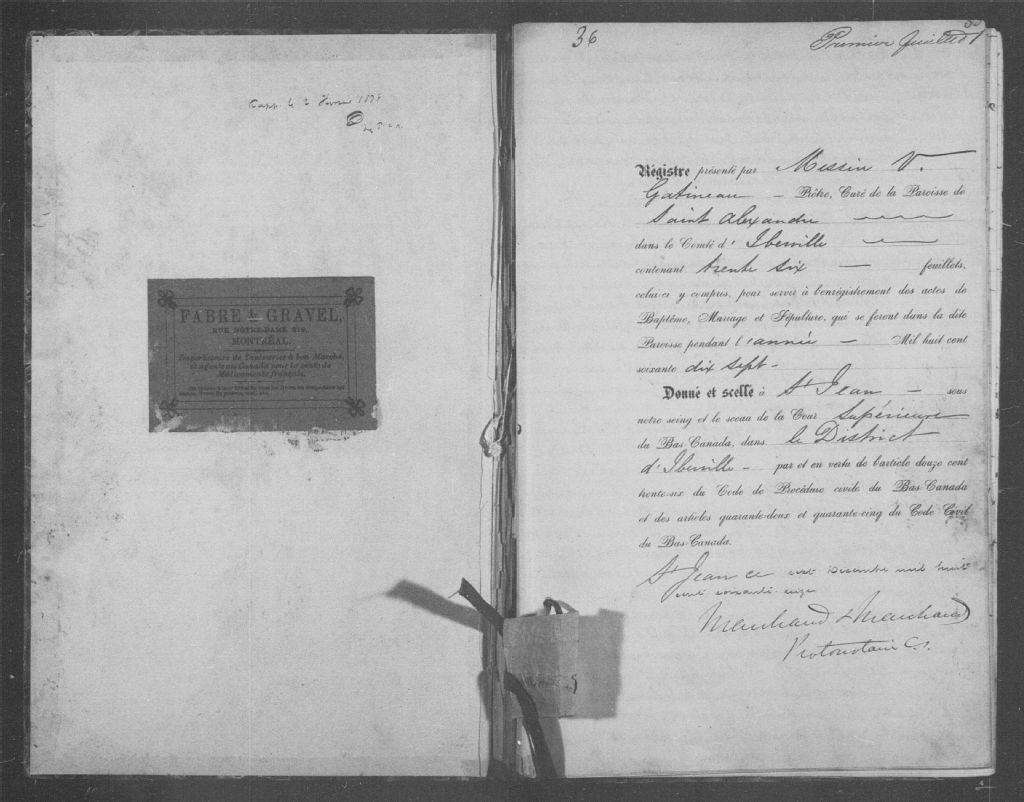 36
Premier feuillet
FABRE & GRAVEL,
RUE NOTRE-DAME 219,
MONTRÉAL.
Importateurs de Tapisseries à bon Marché,
et agents au Canada pour la vente de
Mélanges français.
Régistre présenté par Messire V.
Gatineau — Prêtre, Curé de la Paroisse de
Saint Alexandre
dans le Comté d'Iberville
contenant trente six — feuillets,
celui-ci y compris, pour servir à l'enrégistrement des actes de
Baptême, Mariage et Sépulture, qui se feront dans la dite
Paroisse pendant l'année — Mil huit cent
soixante dix sept —
Donné et scellé à St Jean — sous
notre seing et le sceau de la Cour Supérieure
du Bas-Canada, dans le District
d'Iberville — par et en vertu de l'article douze cent
trente-six du Code de Procédure civile du Bas-Canada
et des articles quarante-deux et quarante-cinq du Code Civil
du Bas-Canada.
St Jean ce Décembre mil huit
cent soixante
Marchand & Marchand
Protonotaire C.S.